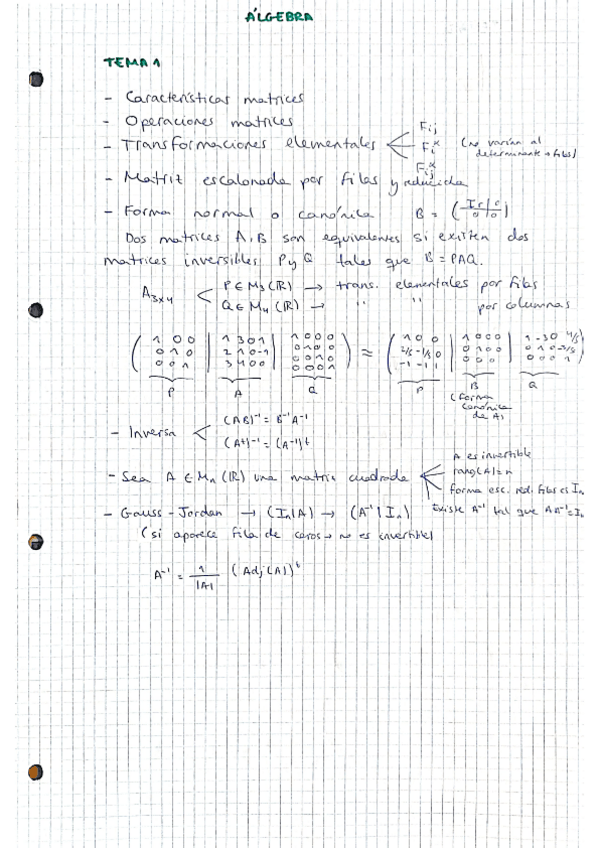 ÁLGEBRA
TEMA 1
- Características matrices
- Operaciones matrices
- Transformaciones elementales < Fij Fi^α Fij^α (no varían al determinante → filas)
- Matriz escalonada por filas y reducida
- Forma normal o canónica B = (Ir|0 / 0|0)
Dos matrices A, B son equivalentes si existen dos
matrices inversibles P y Q tales que B = PAQ.
A3x4 < P ∈ M3 (R) → trans. elementales por filas
Q ∈ M4 (R) → " " por columnas
1 0 0 | 1 3 0 1 | 1 0 0 0
0 1 0 | 2 1 0 -1 | 0 1 0 0
0 0 1 | 3 4 0 0 | 0 0 1 0
0 0 0 1
≈
1 0 0 | 1 0 0 0 | 1 -3 0 4/5
2/5 -1/5 0 | 0 1 0 0 | 0 1 0 -3/5
-1 -1 1 | 0 0 0 | 0 0 0 1
P A Q P B Q
(forma canónica de A)
- Inversa < (AB)⁻¹ = B⁻¹A⁻¹
(Aᵗ)⁻¹ = (A⁻¹)ᵗ
- Sea A ∈ Mn (R) una matriz cuadrada < A es invertible
rang(A) = n
forma esc. red. filas es In
Existe A⁻¹ tal que AA⁻¹ = In
- Gauss - Jordan → (In|A) → (A⁻¹|In)
(si aparece fila de ceros → no es invertible)
A⁻¹ = 1/|A| (Adj(A))ᵗ